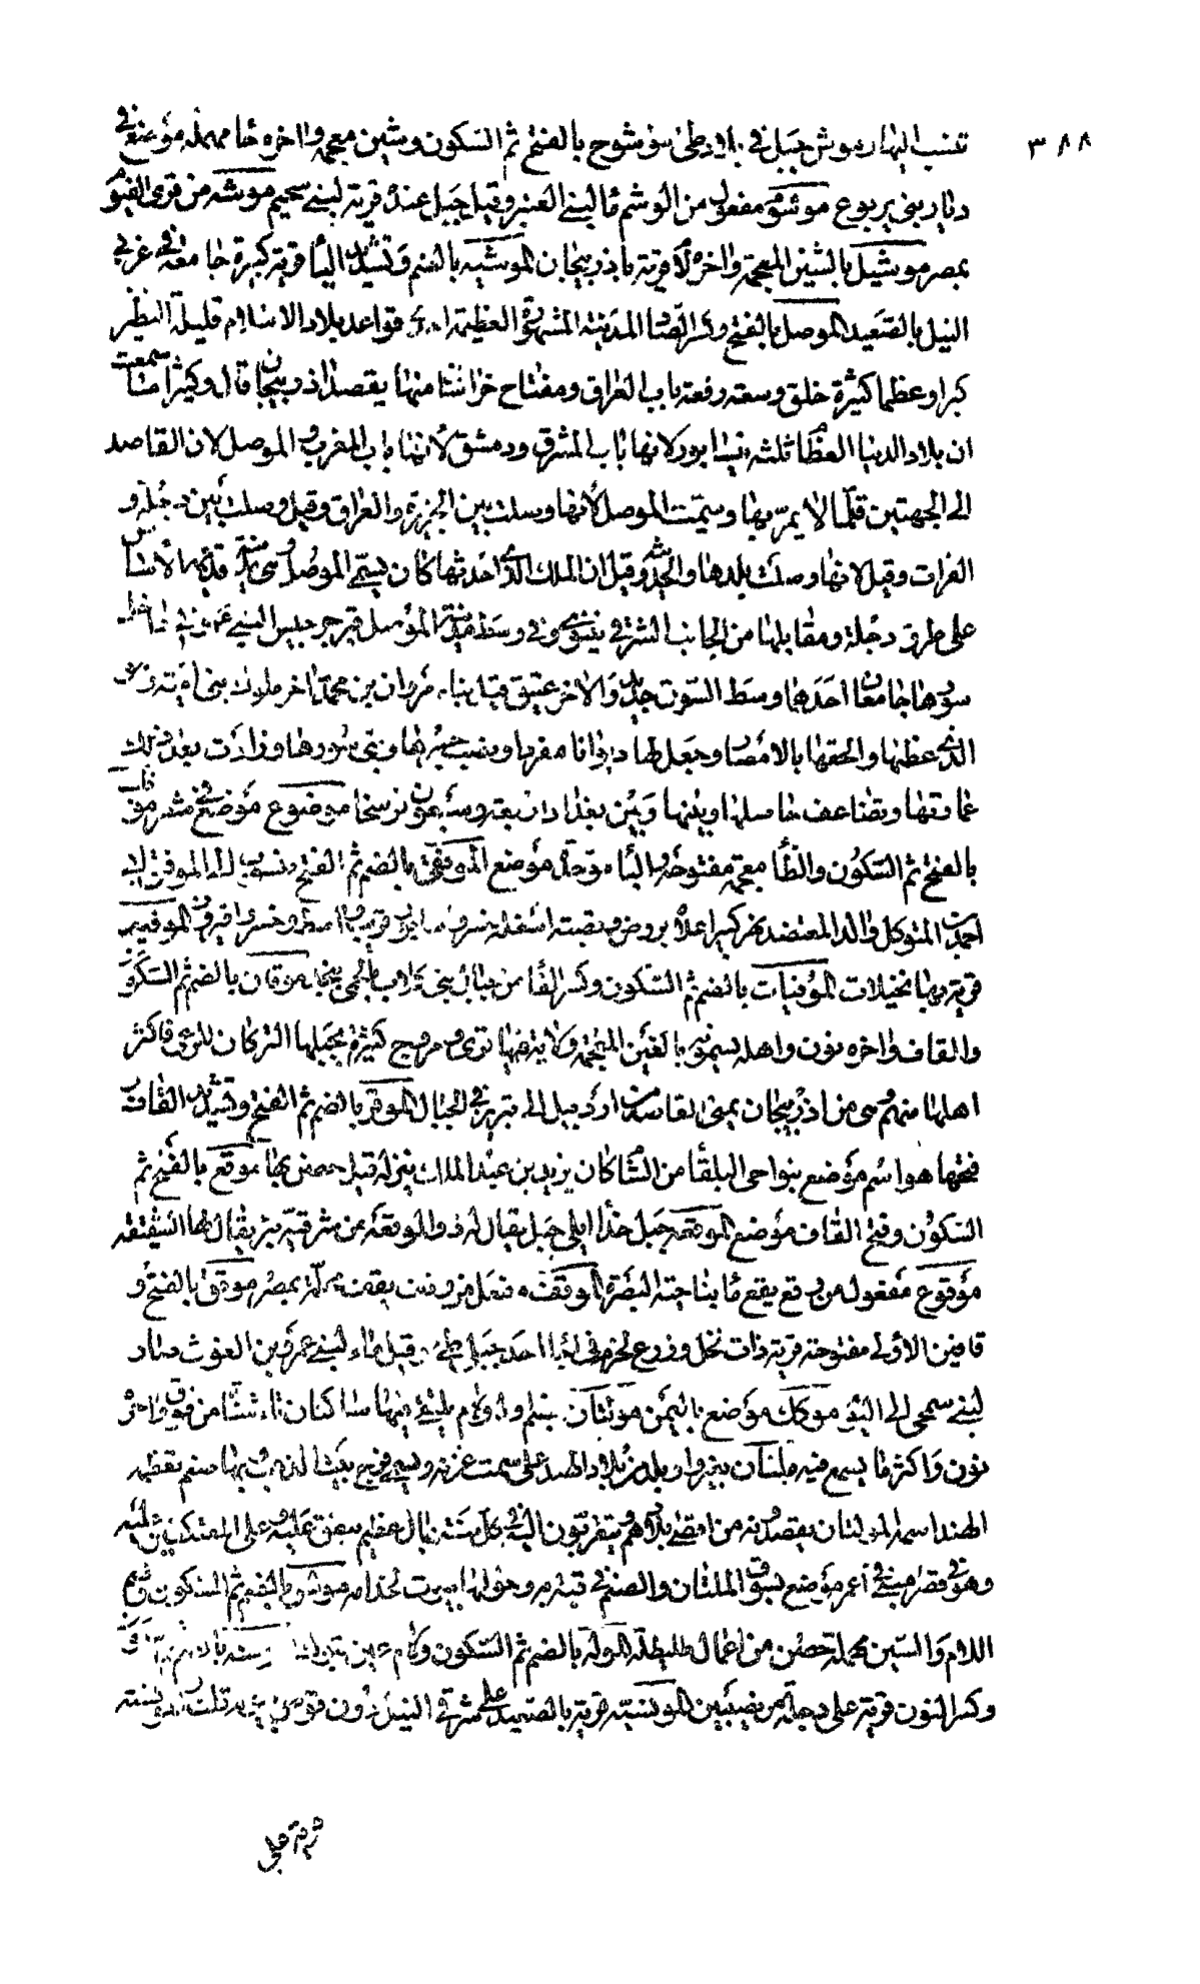 ٣٨٨
تنسب اليها موش جبل في بلاد طي موشوح بالفتح ثم السكون وشين معجمة واخره حا مهملة موضع في
ديار بني يربوع موشوم مفعول من الوشم ما لبني العنبر وقيل جبل عنده قرية لبني سحيم موشه من قرى الفيوم
بمصر موشيل بالشين المعجمة واخره لام قرية باذربيجان الموشيه بالضم وتشديد اليا قرية كبيرة جامعة في غربي
النيل بالصعيد الموصل بالفتح وكسر الصاد المدينة المشهورة العظيمة احدى قواعد بلاد الاسلام قليلة النظير
كبرا وعظما كثيرة خلق وسعة رقعة باب العراق ومفتاح خراسان منها يقصد اذربيجان قال وكثيرا ما سمعت
ان بلاد الدنيا العظام ثلثه نيسابور لانها باب المشرق ودمشق لانها باب المغرب والموصل لان القاصد
الى الجهتين قلما لا يمر بها وسميت الموصل لانها وصلت بين الجزيرة والعراق وقيل وصلت بين دجلة و
الفرات وقيل لانها وصلت بلدها والحديثة وقيل ان الملك الذي احدثها كان يسمى الموصل وهي مدينة قديمة الاساس
على طرف دجلة ومقابلها من الجانب الشرقي نينوى وفي وسط مدينة الموصل قبر جرجيس النبي
سورها جامعان احدهما وسط السوق جديد والاخر عتيق قيل بناه مروان بن محمد اخر ملوك بني امية
الذي عظمها والحقها بالامصار وجعل لها ديوانا مفردا ونصب جسرها وبنى سورها وزادت بعد ذلك
عمارتها وتضاعف حاصلها وبينها وبين بغداد اربعة وسبعون فرسخا موضوع موضع في شعر موظب
بالفتح ثم السكون والظا معجمة مفتوحة والبا موحدة موضع الموفقي بالضم ثم الفتح منسوب الى الموفق ابي
احمد بن المتوكل والد المعتضد نهر كبير اعلاه
قرية بها نخيلات الموفيات بالضم ثم السكون وكسر الفا من جبال بني موقان بالضم ثم السكون
والقاف واخره نون واهله يسمونه بالغين المعجمة ولاية فيها قرى ومروج كثيرة يحتلها التركمان للرعي فاكثر
اهلها منهم وهي من اذربيجان يمر القاصد من اردبيل الى تبريز في الجبال الموقر بالضم ثم الفتح وتشديد القاف
فتحها هو اسم موضع بنواحي البلقا من الشام كان يزيد بن عبد الملك ينزله قيل حصن بها موقع بالفتح ثم
السكون وفتح القاف موضع الموقعه جبل حذا ايلي جبل يقال له ذو الموقعه من شرقيه بئر يقال لها الشيقه
موقوع مفعول من وقع يقع ما بناحية البصرة محلة بمصر موقق بالفتح و
قافين الاولى مفتوحة قرية ذات نخل وزروع لجرم في اجا احد جبلي طي وقيل ماء لبني عمرو بن الغوث صار
لبني شمجى الى اليوم موكل موضع باليمن مولتان بضم اوله ولام يلتقي فيها ساكنان تاء مثناة من فوق واخره
نون واكثر ما يسمع فيه ملتان بغير واو بلد من بلاد الهند على سمت غزنة ويسمى فرج بيت الذهب وبها صنم تعظمه
الهند اسمه المولتان يقصدونه من اقصى بلادهم ويتقربون اليه في كل سنة بمال عظيم ينفق عليه وعلى المعتكفين عليه
وهو في قصر مبني في اعمر موضع بسوق الملتان والصنم في قبة وحولها بيوت لخدامه مولس بالضم ثم السكون وضم
اللام والسين مهملة حصن من اعمال طليطلة المولة بالضم ثم السكون ولام عين
وكسر النون قرية على دجلة من نصيبين المونسية قرية بالصعيد على شرقي النيل دون قوص
شرقي